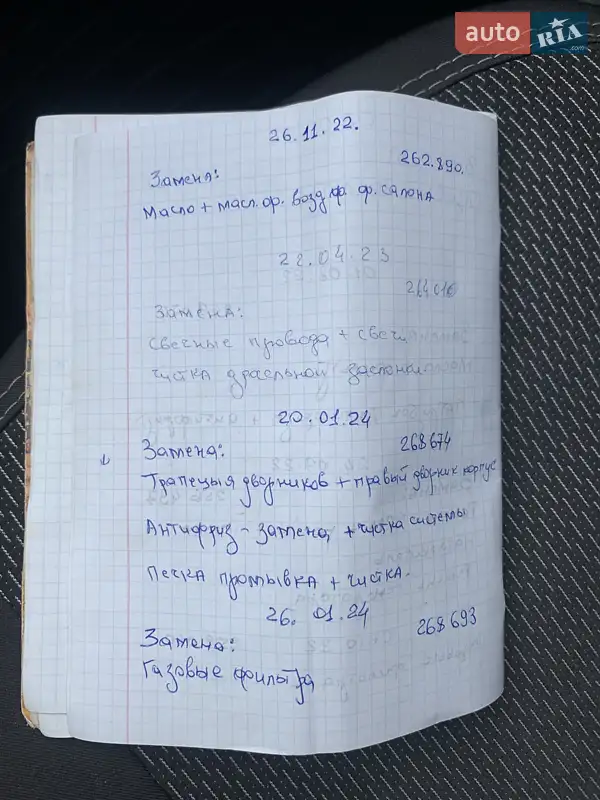 auto RIA .com
26.11.22.
262.890.
Замена:
Масло + масл.ф. возд.ф. ф. салона
22.04.23
264016
Замена:
свечные провода + свечи
чистка драсельной заслонки
20.01.24
268674
Замена:
Трапецыя дворников + правый дворник корпус
Антифриз - замена, + чистка системы
Печка промывка + чистка.
26. 01.24
268693
Замена:
Газовые фильтра